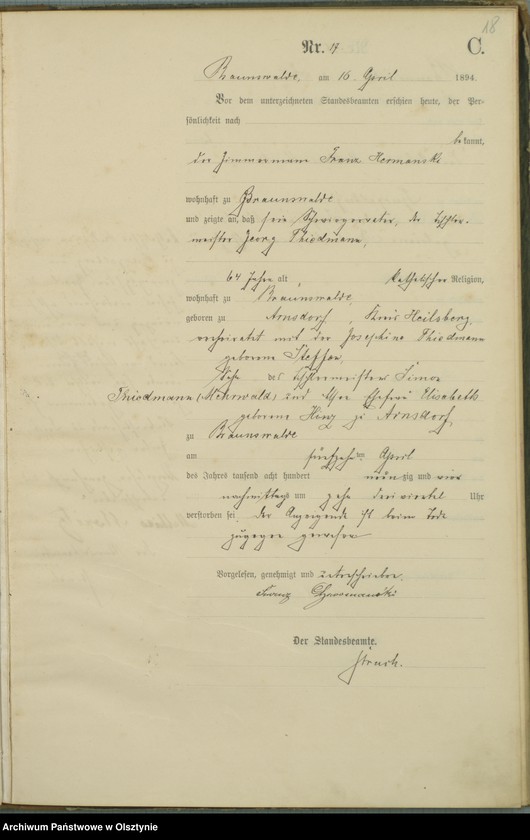 18
Nr. 17 C.
Braunswalde, am 16. April 1894.
Vor dem unterzeichneten Standesbeamten erschien heute, der Per-
sönlichkeit nach
bekannt,
der Zimmermann Franz Hermanski
wohnhaft zu Braunswalde
und zeigte an, daß sein Schwiegervater, der Tischler-
meister Georg Thiedmann,
64 Jahre alt, katholischer Religion,
wohnhaft zu Braunswalde,
geboren zu Arnsdorf, Kreis Heilsberg,
verheiratet mit der Josephine Thiedmann
geborene Steffen,
Sohn des Tischlermeisters Simon
Thiedmann und Ehefrau Elisabeth
geborene Hinz zu Arnsdorf,
zu Braunswalde
am fünfzehnten April
des Jahres tausend acht hundert neunzig und vier
nachmittags um zehn dreiviertel Uhr
verstorben sei. Der Anzeigende ist beim Tode
zugegen gewesen
Vorgelesen, genehmigt und unterschrieben.
Franz Hermanski
Der Standesbeamte.
Archiwum Państwowe w Olsztynie